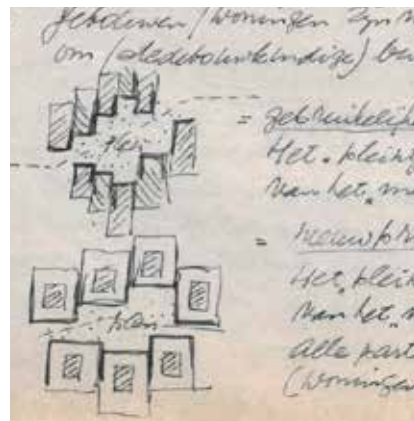 gebouwen / woningen zijn
om (stedebouwkundige) be
plein
= gebruikelijk
Het „plein
van het „
= nieuw
plein
Het „plein
van het „
alle part
(woningen